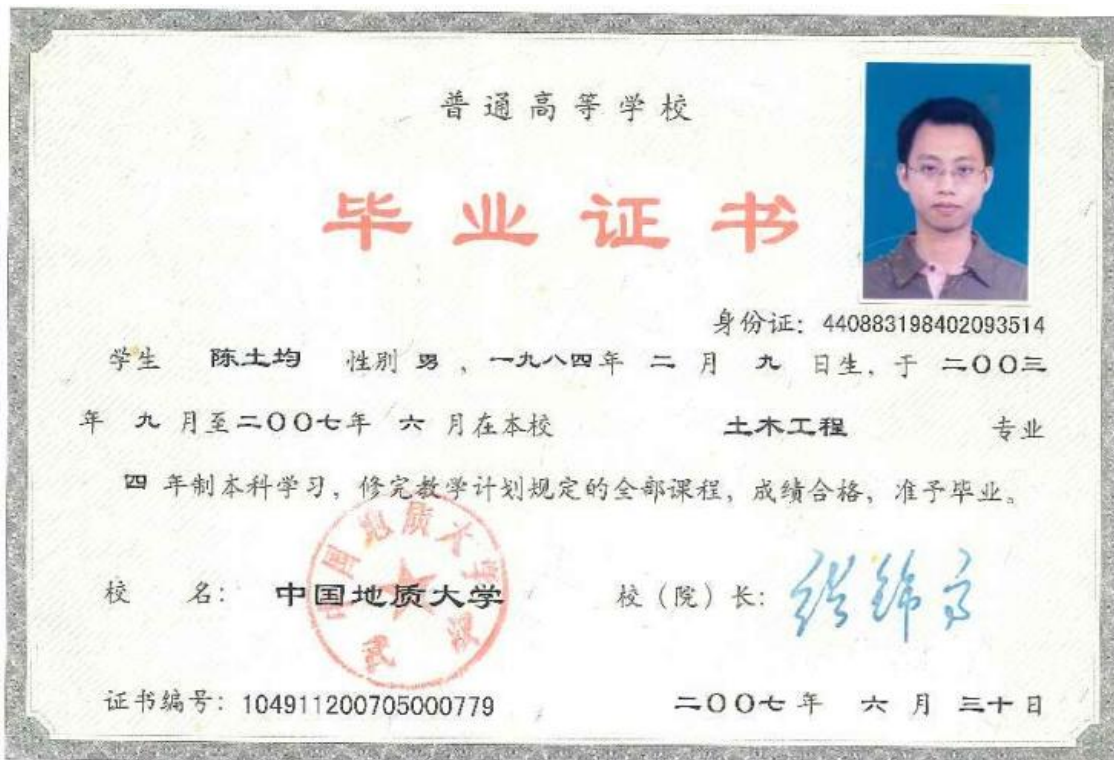 普通高等学校
毕业证书
身份证：440883198402093514
学生 陈土均 性别 男，一九八四年 二 月 九 日生，于 二〇〇三
年 九 月至二〇〇七年 六 月在本校 土木工程 专业
四 年制本科学习，修完教学计划规定的全部课程，成绩合格，准予毕业。
校 名： 中国地质大学 校（院）长： 张锦高
中国地质大学
武汉
证书编号：104911200705000779 二〇〇七年 六 月 三十日